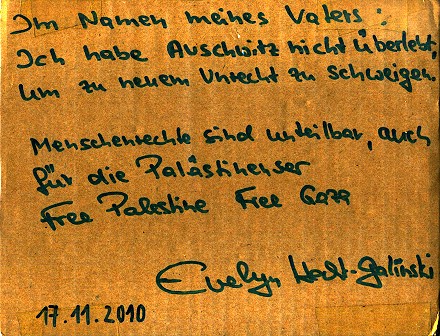 Im Namen meines Vaters:
Ich habe Auschwitz nicht überlebt,
um zu neuem Unrecht zu schweigen.
Menschenrechte sind unteilbar, auch
für die Palästinenser
Free Palestine Free Gaza
Evelyn Hecht-Galinski
17.11.2010